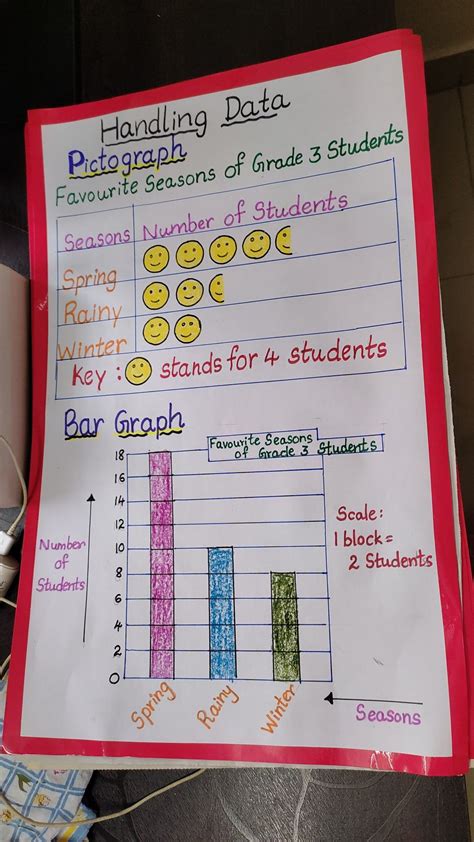 Handling Data
Pictograph
Favourite Seasons of Grade 3 Students
Seasons Number of Students
Spring
Rainy
Winter
Key : stands for 4 students
Bar Graph
Favourite Seasons
of Grade 3 Students
18
16
14
12
10
8
6
4
2
0
Number
of
Students
Scale:
1 block =
2 Students
Spring
Rainy
Winter
Seasons